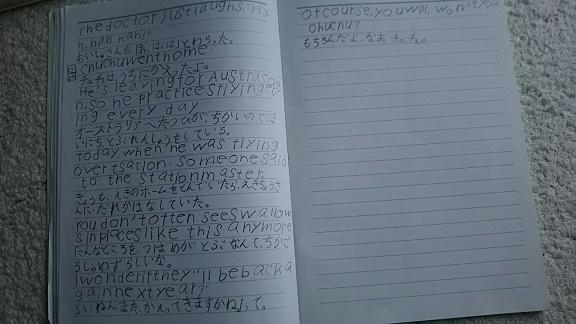 The doctor just laughs. "Ha
h, han han!"
おいしゃさんも「は、は、は」とわらった。
Chuchu went home
チュチュは、うちにかえったよ。
He's leaving for Austra
n, so he practices flying
ing every day
オーストラリアへたつひが、ちかいので、
いにちとぶれんしゅうをしている。
Today when he was flying
over tsation. Someone said
to the station master
きょうも、えきのホームをとんでいたら、えきちょうさ
んに、だれかはなしていた。
You don't often see swallow
s in places like this anymore
こんなところを つばめが とぶなんて、ちかご
ろし、めずらしいな。
I wonder if they"ll be back a
gain next year?
らいねんまた、かえってきますかね」って。
Of course, you will, won't you
Chuchu?
もちろんだよ、なあ チュチュ。